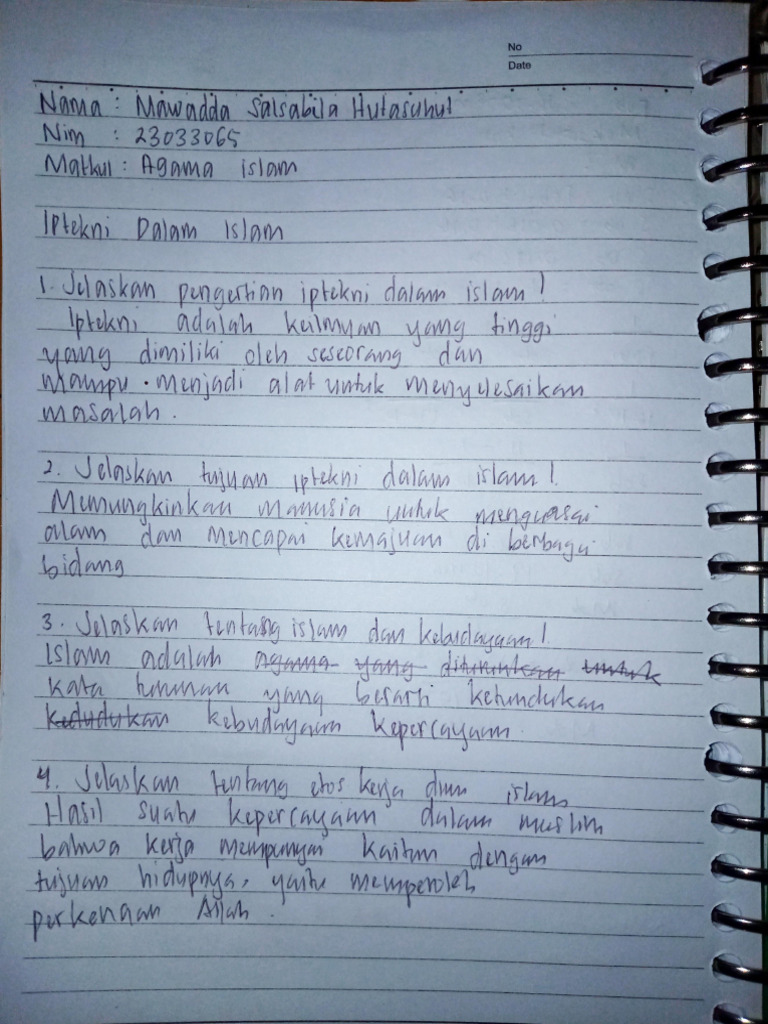 No
Date
Nama : Mawadda Salsabila Hutasuhut
Nim : 23033065
Matkul : Agama islam
Iptekni Dalam Islam
1. Jelaskan pengertian iptekni dalam islam !
Iptekni adalah keilmuan yang tinggi
yang dimiliki oleh seseorang dan
Mampu menjadi alat untuk menyelesaikan
masalah.
2. Jelaskan tujuan iptekni dalam islam !
Memungkinkan manusia untuk menguasai
alam dan mencapai kemajuan di berbagai
bidang
3. Jelaskan tentang islam dan kebudayaan !
Islam adalah agama yang diturunkan untuk
kata turunan yang berarti ketundukan
kedudukan kebudayaan kepercayaan.
4. Jelaskan tentang etos kerja dlm islam
Hasil suatu kepercayaan dalam muslim
bahwa kerja mempunyai kaitan dengan
tujuan hidupnya, yaitu memperoleh
perkenaan Allah.